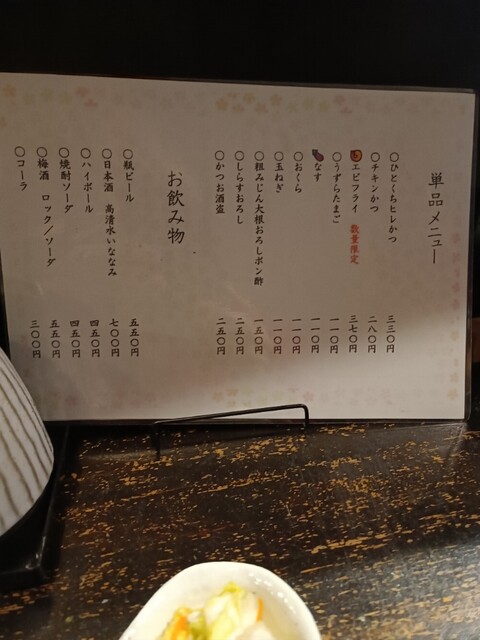 単品メニュー
〇ひとくちヒレかつ 三三〇円
〇チキンかつ 二八〇円
〇エビフライ 数量限定 三七〇円
〇うずらたまご 一一〇円
なす 一一〇円
〇おくら 一〇〇円
〇玉ねぎ 一一〇円
〇粗みじん大根おろしポン酢 一五〇円
〇しらすおろし 二五〇円
〇かつお酒盗 二五〇円
お飲み物
〇瓶ビール 五五〇円
〇日本酒 高清水いなみ 七〇〇円
〇ハイボール 四五〇円
〇焼酎ソーダ 四五〇円
〇梅酒 ロック／ソーダ 五五〇円
〇コーラ 三〇〇円